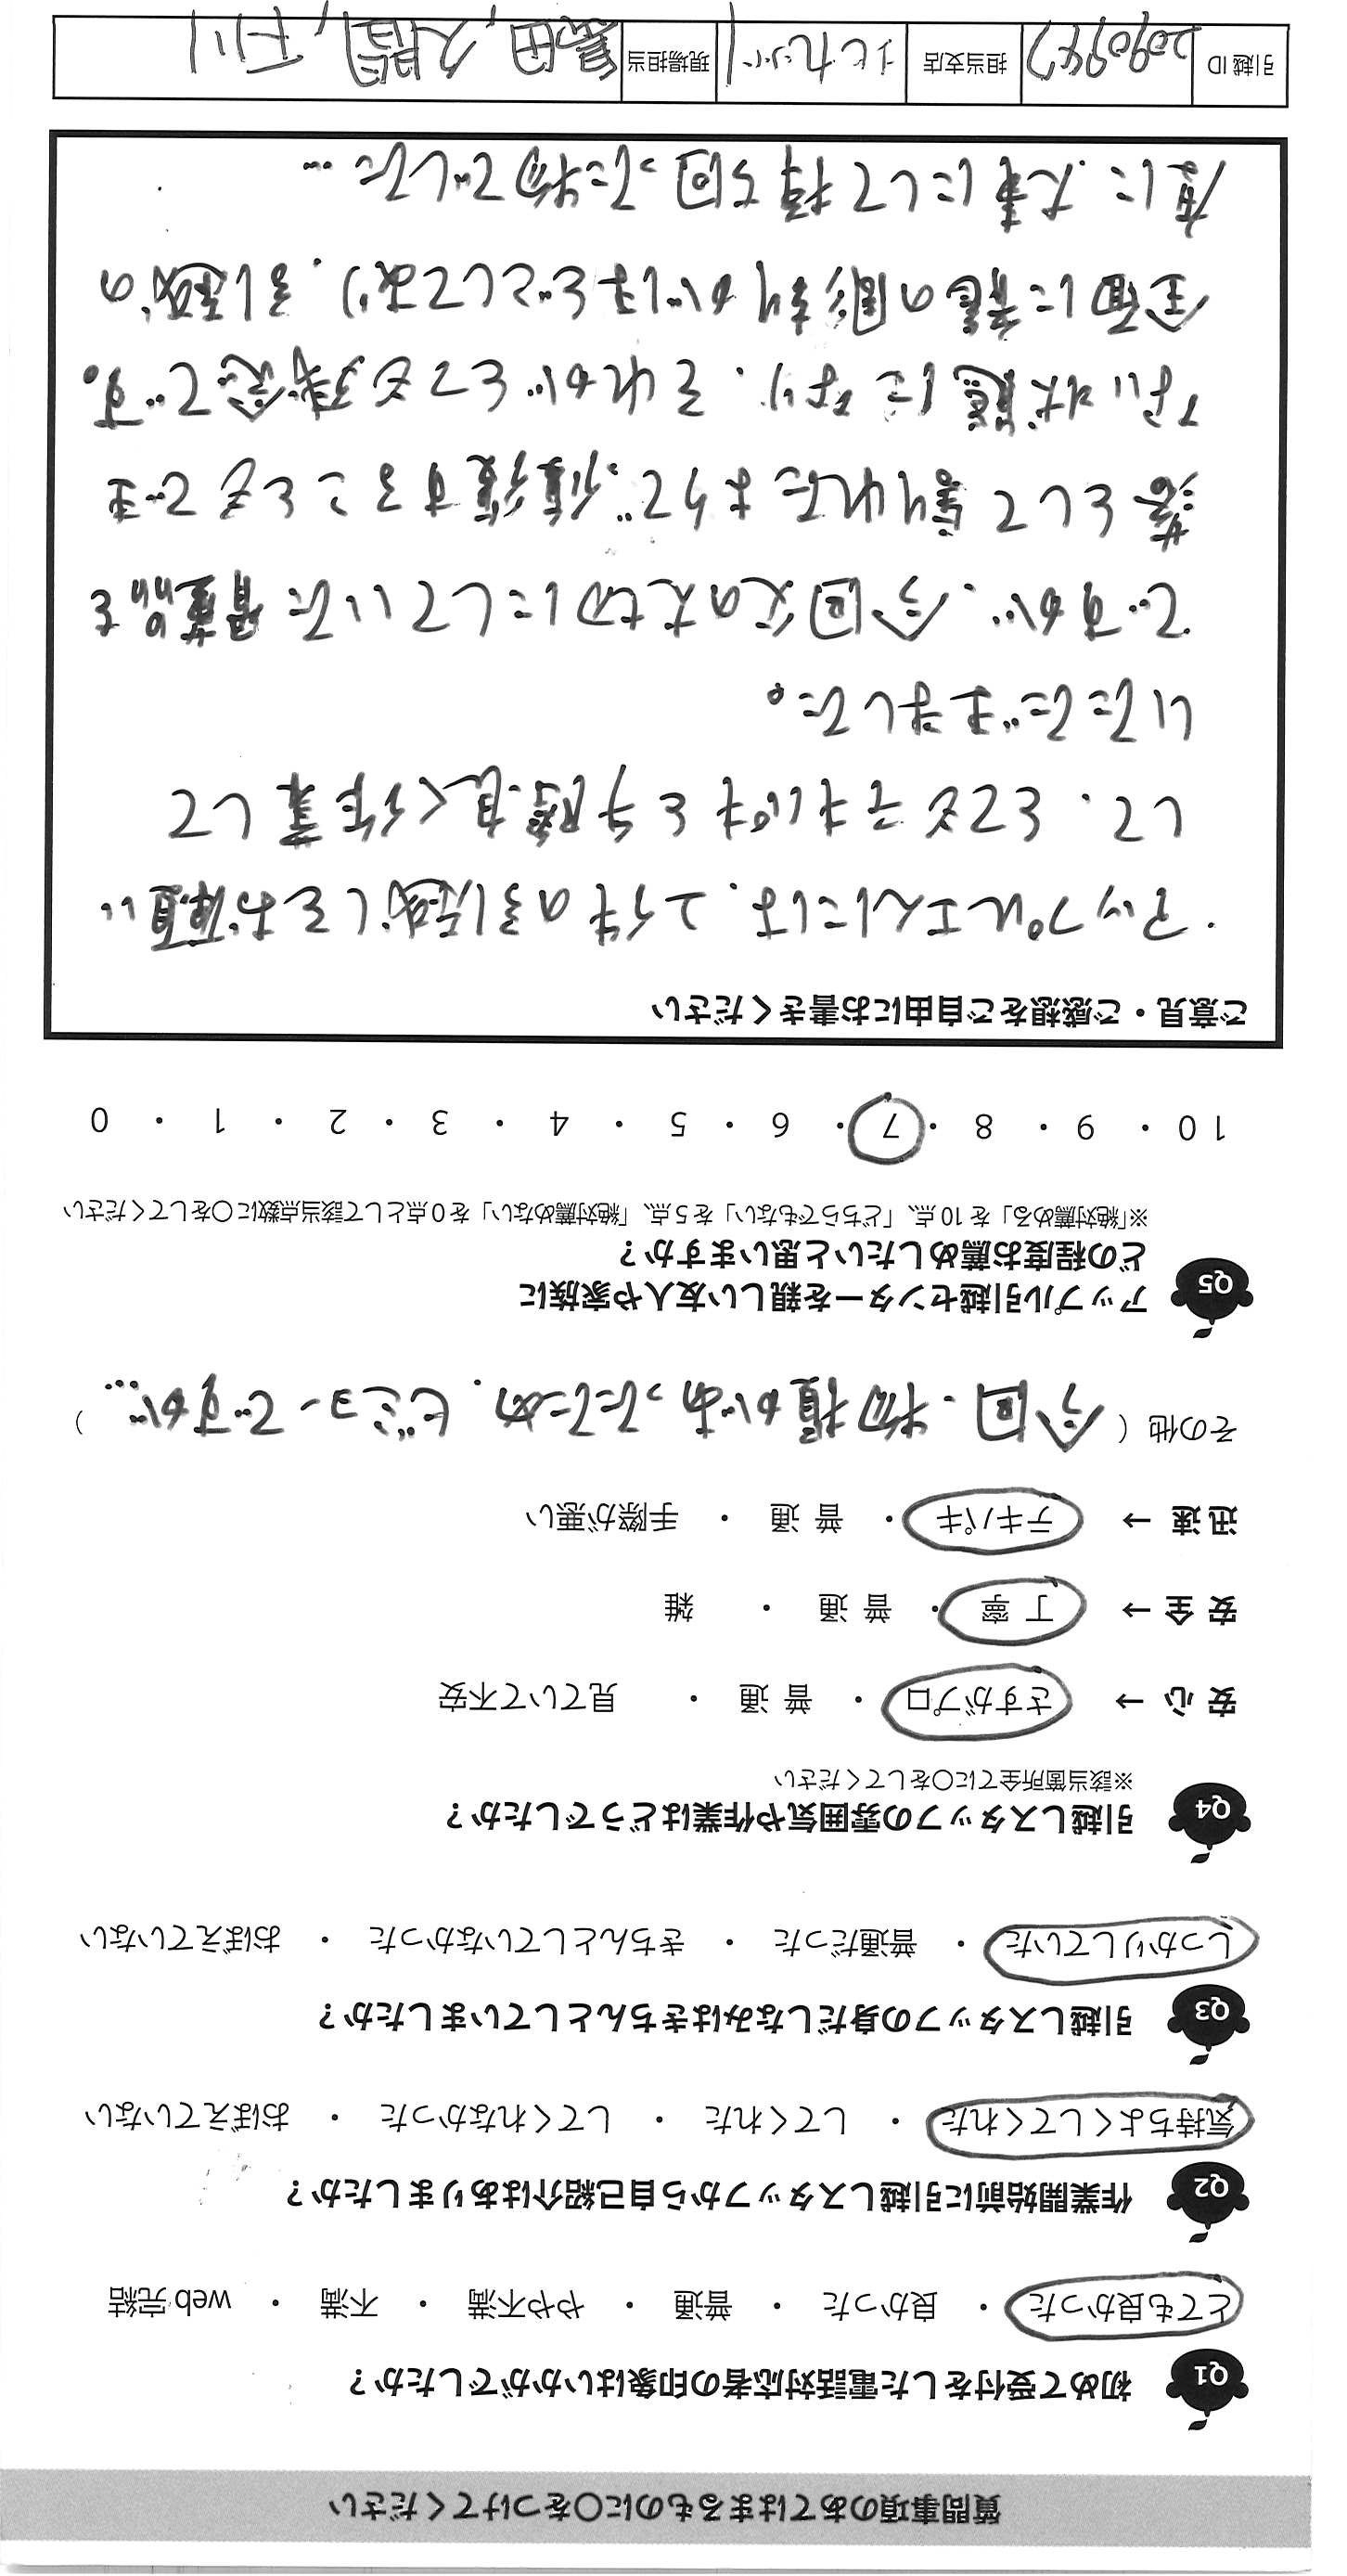 質問事項のあてはまるものに○をつけてください
Q1 初めて受付をした電話対応者の印象はいかがでしたか？
とても良かった ・ 良かった ・ 普通 ・ やや不満 ・ 不満 ・ web完結
Q2 作業開始前に引越しスタッフから自己紹介はありましたか？
気持ちよくしてくれた ・ してくれた ・ してくれなかった ・ おぼえていない
Q3 引越しスタッフの身だしなみはきちんとしていましたか？
しっかりしていた ・ 普通だった ・ きちんとしていなかった ・ おぼえていない
Q4 引越しスタッフの雰囲気や作業はどうでしたか？
※該当箇所全てに○をしてください
安 心 → さすがプロ ・ 普 通 ・ 見ていて不安
安 全 → 丁 寧 ・ 普 通 ・ 雑
迅 速 → テキパキ ・ 普 通 ・ 手際が悪い
その他（ 今回、物損があったため、ビミョーですが… ）
Q5 アップル引越センターを親しい友人や家族に
どの程度お薦めしたいと思いますか？
※「絶対薦める」を 10 点、「どちらでもない」を 5 点、「絶対薦めない」を 0 点として該当点数に○をしてください
10 ・ 9 ・ 8 ・ 7 ・ 6 ・ 5 ・ 4 ・ 3 ・ 2 ・ 1 ・ 0
ご意見・ご感想をご自由にお書きください
・アップルさんには、2件の引越しをお願い
して、とてもテキパキと手際良く作業して
いただきました。
ですが、今回父の大切にしていた骨董品を
落として割れたようで、修復することもでき
ない状態になり、それがとても残念です。
全面に龍の彫刻がほどこしてあり、引越の
度に、大事にして持ち回った物でした…
引越ID 2090947 担当支店 北九州 現場担当 島田,久間,下川